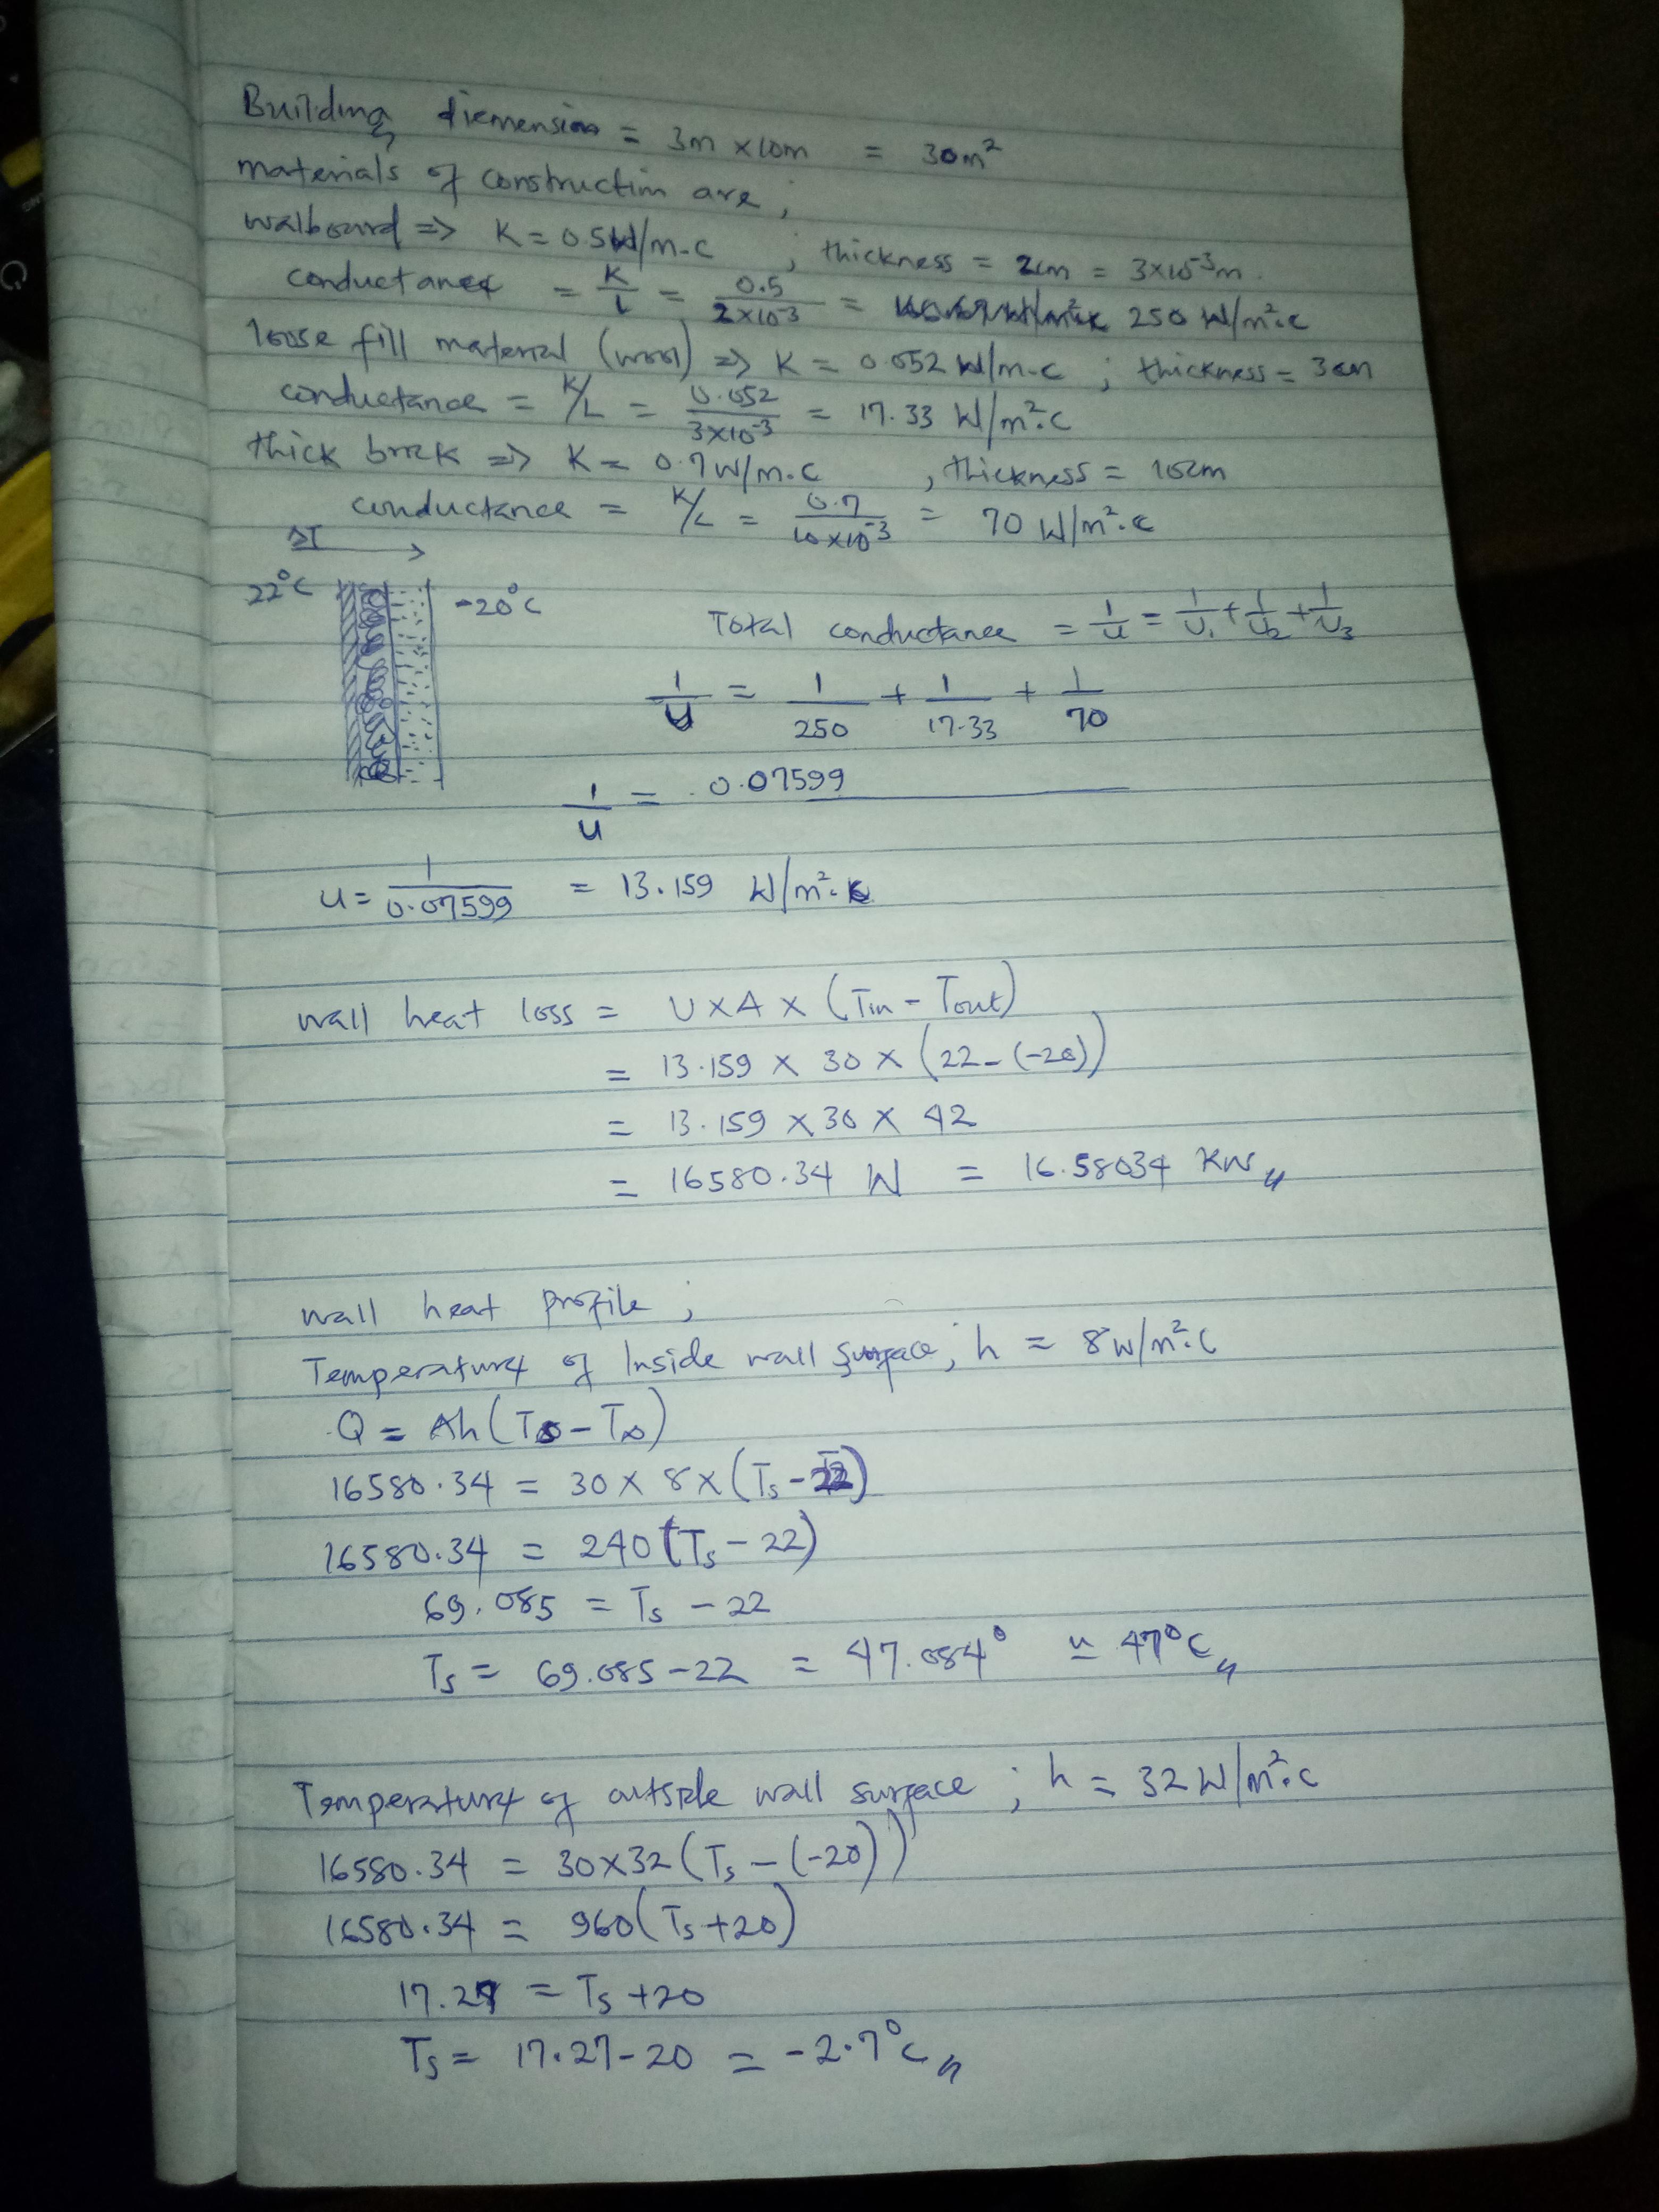 Building diemension = 3m x 10m = 30m²
materials of construction are;
walboard => K = 0.5W/m-c ; thickness = 2cm = 3x10⁻³m.
conductance = K/L = 0.5/2x10⁻³ = 250 W/m².c
loose fill material (wool) => K = 0.052 W/m-c ; thickness = 3cm
conductance = K/L = 0.052/3x10⁻³ = 17.33 W/m².c
thick brick => K = 0.7W/m.c , thickness = 10cm
conductance = K/L = 0.7/10x10⁻³ = 70 W/m².c
ΔT
22°C -20°C
Total conductance = 1/u = 1/U₁ + 1/U₂ + 1/U₃
1/U = 1/250 + 1/17.33 + 1/70
1/u = 0.07599
u = 1/0.07599 = 13.159 W/m².k
wall heat loss = U x A x (Tin - Tout)
= 13.159 x 30 x (22-(-20))
= 13.159 x 30 x 42
= 16580.34 W = 16.58034 KW
wall heat profile ;
Temperature of Inside wall surface; h = 8W/m².C
Q = Ah(Ts - T∞)
16580.34 = 30 x 8 x (Ts - 22)
16580.34 = 240(Ts - 22)
69.085 = Ts - 22
Ts = 69.085-22 = 47.084° ≃ 47°C
Temperature of outside wall surface ; h = 32W/m².c
16580.34 = 30x32(Ts - (-20))
16580.34 = 960(Ts+20)
17.27 = Ts+20
Ts = 17.27-20 = -2.7°C